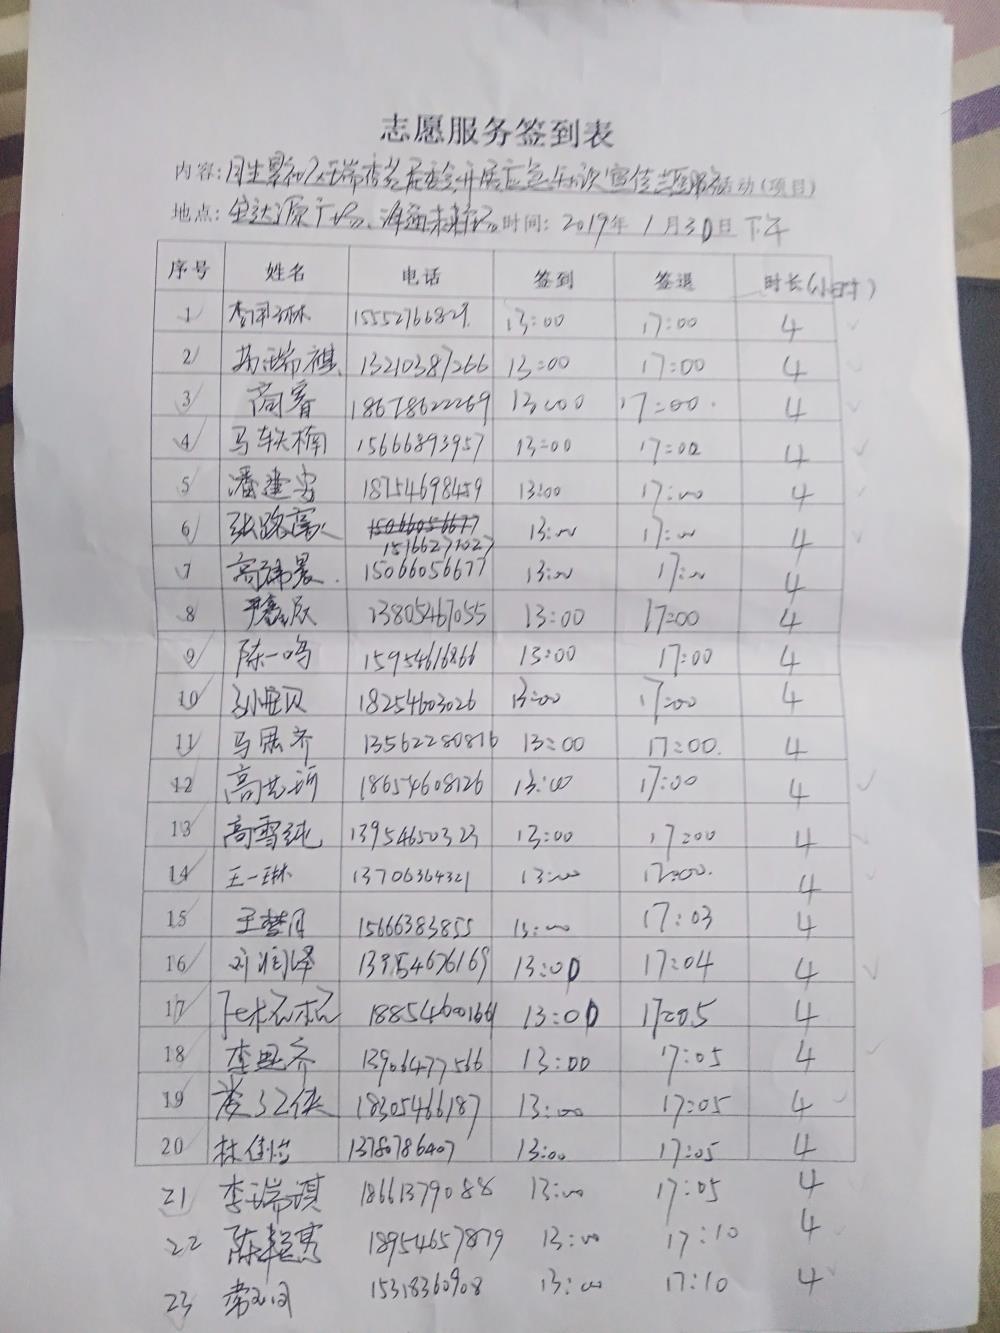 志愿服务签到表
内容: 社区 开展应急知识宣传志愿服务活动(项目)
地点: 广场、 时间: 2019年1月30日下午
序号 姓名 电话 签到 签退 时长(小时)
1 15552766829 13:00 17:00 4
2 孙瑞祺 13210387266 13:00 17:00 4
3 商睿 18678622269 13:00 17:00. 4
4 马轶楠 15666893957 13:00 17:00 4
5 潘建安 18754698459 13:00 17:00 4
6 张路 15066056677 13:00 17:00 4
15166271027
7 高 15066056677 13:00 17:00 4
8 尹鑫辰 13805467055 13:00 17:00 4
9 陈一鸣 15954616866 13:00 17:00 4
10 18254603026 13:00 17:00 4
11 马思齐 13562280816 13:00 17:00. 4
12 高 18654608126 13:00 17:00 4
13 高雪纯 13954650323 13:00 17:00 4
14 王一琳 13706364321 13:00 17:00. 4
15 王梦月 15666383855 13:00 17:03 4
16 刘润泽 13954676169 13:00 17:04 4
17 18854600166 13:00 17:05 4
18 李思齐 13906477566 13:00 17:05 4
19 18305466187 13:00 17:05 4
20 林佳怡 13780786407 13:00 17:05 4
21 李瑞琪 18661379088 13:00 17:05 4
22 陈 18954657879 13:00 17:10 4
23 常 15318360908 13:00 17:10 4